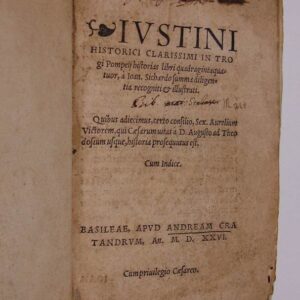 IVSTINI
HISTORICI CLARISSIMI IN TRO
gi Pompeij historias libri quadragintaqua-
tuor, a Ioan. Sichardo summa diligen-
tia recogniti & illustrati.
Quibus adiecimus, certo consilio, Sex. Aurelium
Victorem, qui Cæsarum uitas a D. Augusto ad Theo
dosium usque, historia prosequutus est.
Cum Indice.
BASILEAE, APVD ANDREAM CRA
TANDRVM, An. M. D. XXVI.
Cum priuilegio Cæsareo.